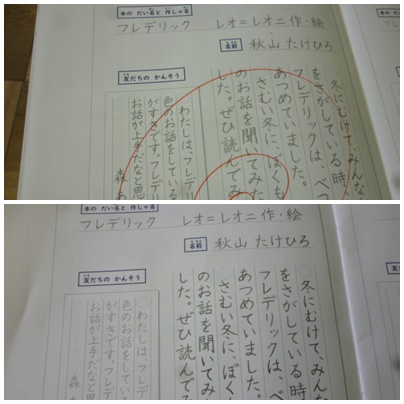 本の だい名と 作しゃ名
フレデリック レオ=レオニ 作・絵
名前 秋山 たけひろ
冬にむけて、みん
をさがしている時
フレデリックは、べつ
あつめていました。
さむい冬に、ぼくも
のお話を聞いてみた
した。ぜひ読んでみ
友だちの かんそう
わたしは、フレデ
色のお話をしている
がすきです。フレデ
お話が上手だなと思
森
本の だい名と 作しゃ名
フレデリック レオ=レオニ 作・絵
名前 秋山 たけひろ
冬にむけて、みんな
をさがしている時
フレデリックは、べ
あつめていました。
さむい冬に、ぼく
のお話を聞いてみ
した。ぜひ読んで
友だちの かんそう
わたしは、フレデ
色のお話をしてい
がすきです。フレデ
お話が上手だなと
森